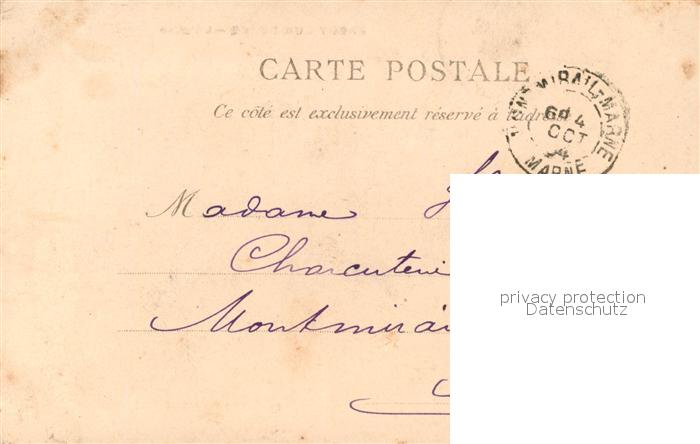 CARTE POSTALE
Ce côté est exclusivement réservé à l'adresse
MONTMIRAIL-MARNE
4
OCT
04
MARNE
Madame
Charcuterie
Montmirail
privacy protection
Datenschutz